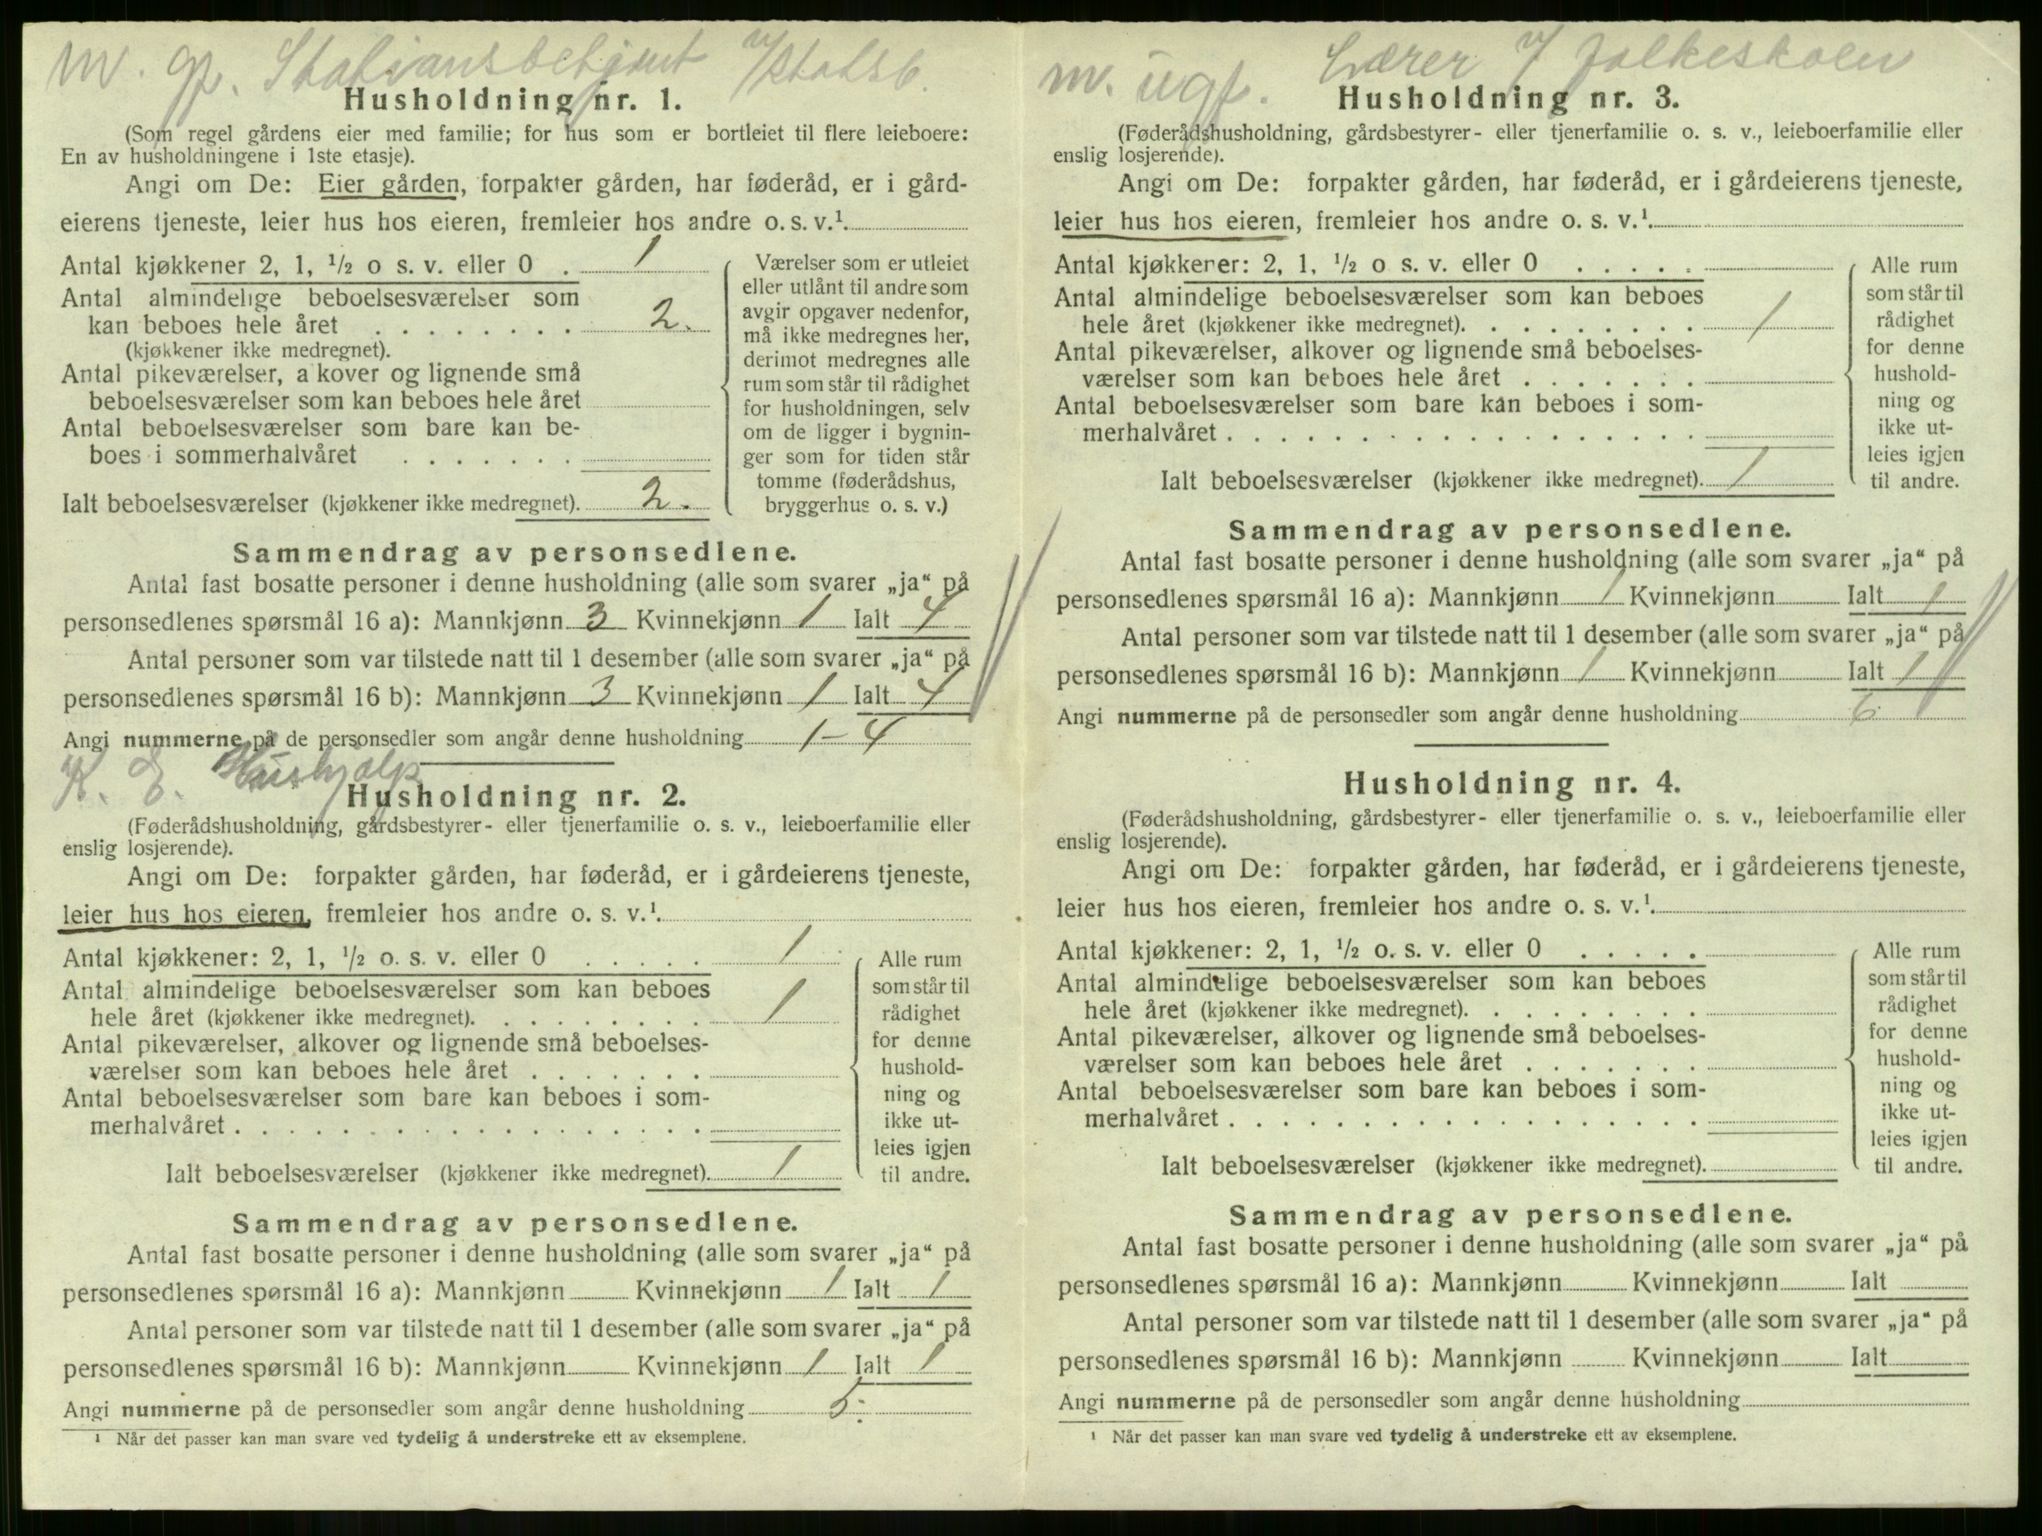 m. gp. Stationsbetjent v/statsb.
Husholdning nr. 1.
(Som regel gårdens eier med familie; for hus som er bortleiet til flere leieboere:
En av husholdningene i 1ste etasje).
Angi om De: Eier gården, forpakter gården, har føderåd, er i gård-
eierens tjeneste, leier hus hos eieren, fremleier hos andre o. s. v.¹.
Antal kjøkkener 2, 1, ½ o s. v. eller 0 . 1
Antal almindelige beboelsesværelser som
kan beboes hele året . . . . . . . . 2.
(kjøkkener ikke medregnet).
Antal pikeværelser, a kover og lignende små
beboelsesværelser som kan beboes hele året
Antal beboelsesværelser som bare kan be-
boes i sommerhalvåret . . . . . . .
Ialt beboelsesværelser (kjøkkener ikke medregnet). 2.
Værelser som er utleiet
eller utlånt til andre som
avgir opgaver nedenfor,
må ikke medregnes her,
derimot medregnes alle
rum som står til rådighet
for husholdningen, selv
om de ligger i bygnin-
ger som for tiden står
tomme (føderådshus,
bryggerhus o. s. v.)
Sammendrag av personsedlene.
Antal fast bosatte personer i denne husholdning (alle som svarer „ja“ på
personsedlenes spørsmål 16 a): Mannkjønn 3 Kvinnekjønn 1 Ialt 4
Antal personer som var tilstede natt til 1 desember (alle som svarer „ja“ på
personsedlenes spørsmål 16 b): Mannkjønn 3 Kvinnekjønn 1 Ialt 4
Angi nummerne på de personsedler som angår denne husholdning 1-4
K. E. Hushjælp
Husholdning nr. 2.
(Føderådshusholdning, gårdsbestyrer- eller tjenerfamilie o. s. v., leieboerfamilie eller
enslig losjerende).
Angi om De: forpakter gården, har føderåd, er i gårdeierens tjeneste,
leier hus hos eieren, fremleier hos andre o. s. v.¹.
Antal kjøkkener: 2, 1, ½ o. s. v. eller 0 . . . . . 1
Antal almindelige beboelsesværelser som kan beboes
hele året (kjøkkener ikke medregnet). . . . . . . . . 1
Antal pikeværelser, alkover og lignende små beboelses-
værelser som kan beboes hele året . . . . . . .
Antal beboelsesværelser som bare kan beboes i som-
merhalvåret . . . . . . . . . . . . . . . . . .
Ialt beboelsesværelser (kjøkkener ikke medregnet). 1
Alle rum
som står til
rådighet
for denne
hushold-
ning og
ikke ut-
leies igjen
til andre.
Sammendrag av personsedlene.
Antal fast bosatte personer i denne husholdning (alle som svarer „ja“ på
personsedlenes spørsmål 16 a): Mannkjønn Kvinnekjønn 1 Ialt 1
Antal personer som var tilstede natt til 1 desember (alle som svarer „ja“ på
personsedlenes spørsmål 16 b): Mannkjønn Kvinnekjønn 1 Ialt 1
Angi nummerne på de personsedler som angår denne husholdning 5.
¹ Når det passer kan man svare ved tydelig å understreke ett av eksemplene.
m. ugf. Lærer v/ folkeskolen
Husholdning nr. 3.
(Føderådshusholdning, gårdsbestyrer- eller tjenerfamilie o. s. v., leieboerfamilie eller
enslig losjerende).
Angi om De: forpakter gården, har føderåd, er i gårdeierens tjeneste,
leier hus hos eieren, fremleier hos andre o. s. v.¹.
Antal kjøkkener: 2, 1, ½ o s. v. eller 0 . . . . .
Antal almindelige beboelsesværelser som kan beboes
hele året (kjøkkener ikke medregnet). . . . . . . . . 1
Antal pikeværelser, alkover og lignende små beboelses-
værelser som kan beboes hele året . . . . . . .
Antal beboelsesværelser som bare kan beboes i som-
merhalvåret . . . . . . . . . . . . . . . . . .
Ialt beboelsesværelser (kjøkkener ikke medregnet). 1
Alle rum
som står til
rådighet
for denne
hushold-
ning og
ikke ut-
leies igjen
til andre.
Sammendrag av personsedlene.
Antal fast bosatte personer i denne husholdning (alle som svarer „ja“ på
personsedlenes spørsmål 16 a): Mannkjønn 1 Kvinnekjønn Ialt 1
Antal personer som var tilstede natt til 1 desember (alle som svarer „ja“ på
personsedlenes spørsmål 16 b): Mannkjønn 1 Kvinnekjønn Ialt 1
Angi nummerne på de personsedler som angår denne husholdning 6
Husholdning nr. 4.
(Føderådshusholdning, gårdsbestyrer- eller tjenerfamilie o. s. v., leieboerfamilie eller
enslig losjerende).
Angi om De: forpakter gården, har føderåd, er i gårdeierens tjeneste,
leier hus hos eieren, fremleier hos andre o. s. v.¹.
Antal kjøkkener: 2, 1, ½ o. s. v. eller 0 . . . . .
Antal almindelige beboelsesværelser som kan beboes
hele året (kjøkkener ikke medregnet). . . . . . . . .
Antal pikeværelser, alkover og lignende små beboelses-
værelser som kan beboes hele året . . . . . . .
Antal beboelsesværelser som bare kan beboes i som-
merhalvåret . . . . . . . . . . . . . . . . . .
Ialt beboelsesværelser (kjøkkener ikke medregnet).
Alle rum
som står til
rådighet
for denne
hushold-
ning og
ikke ut-
leies igjen
til andre.
Sammendrag av personsedlene.
Antal fast bosatte personer i denne husholdning (alle som svarer „ja“ på
personsedlenes spørsmål 16 a): Mannkjønn Kvinnekjønn Ialt
Antal personer som var tilstede natt til 1 desember (alle som svarer „ja“ på
personsedlenes spørsmål 16 b): Mannkjønn Kvinnekjønn Ialt
Angi nummerne på de personsedler som angår denne husholdning
¹ Når det passer kan man svare ved tydelig å understreke ett av eksemplene.